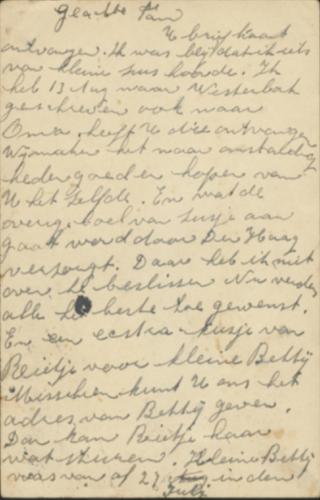 Geachte Fam
U briefkaart
ontvangen. Ik was blij dat ik iets
van kleine zus hoorde. Ik
heb 13 Aug naar Westerbok
geschreven ook naar
Oma. heeft U die ontvangen
Wij maken het naar omstandig
heden goed en hopen van
U het zelfde. En wat de
overig. boel van Susje aan
gaat word door Den Haag
verzorgt. Daar heb ik niet
over te beslissen Nu verder
alle het beste toe gewenst.
En een eestra kusje van
Reietje voor kleine Betty
Misschien kunt U ons het
adres van Betty geven.
Dan kan Reietje haar
wat sturen. Kleine Betty
was van af 27 in den
Juli